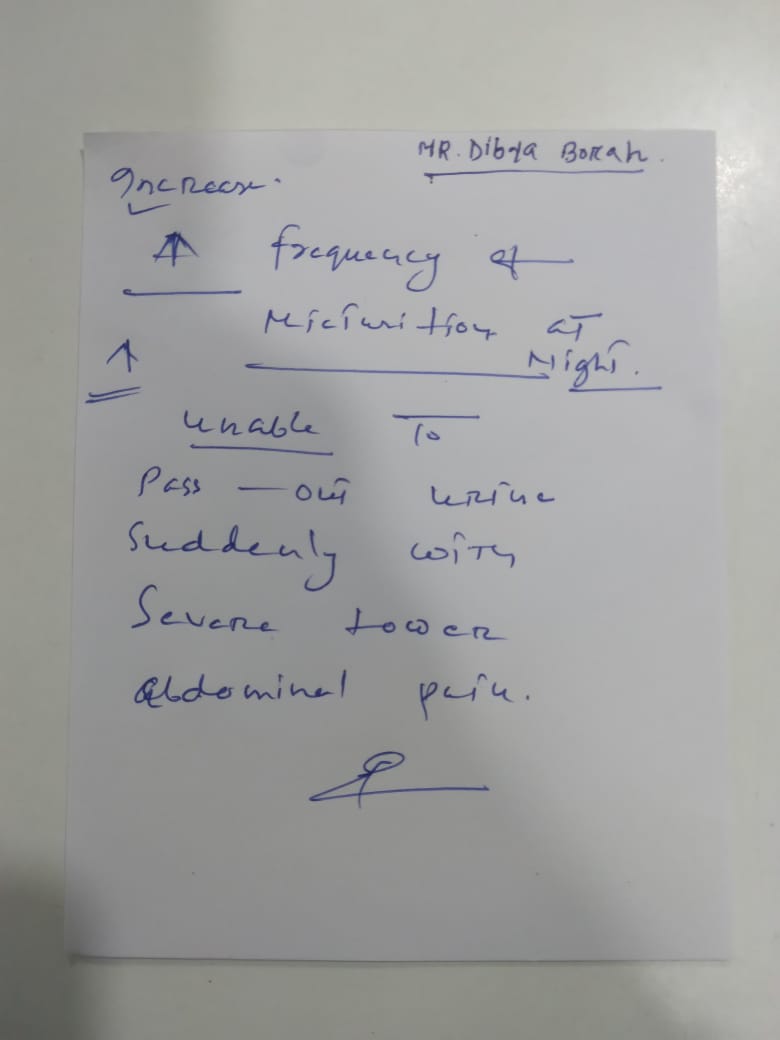 MR. Dibya Borah.
Increase.
↑ frequency of
Micturition at
Night.
↑
unable To
Pass — out urine
Suddenly with
Severe lower
abdominal pain.